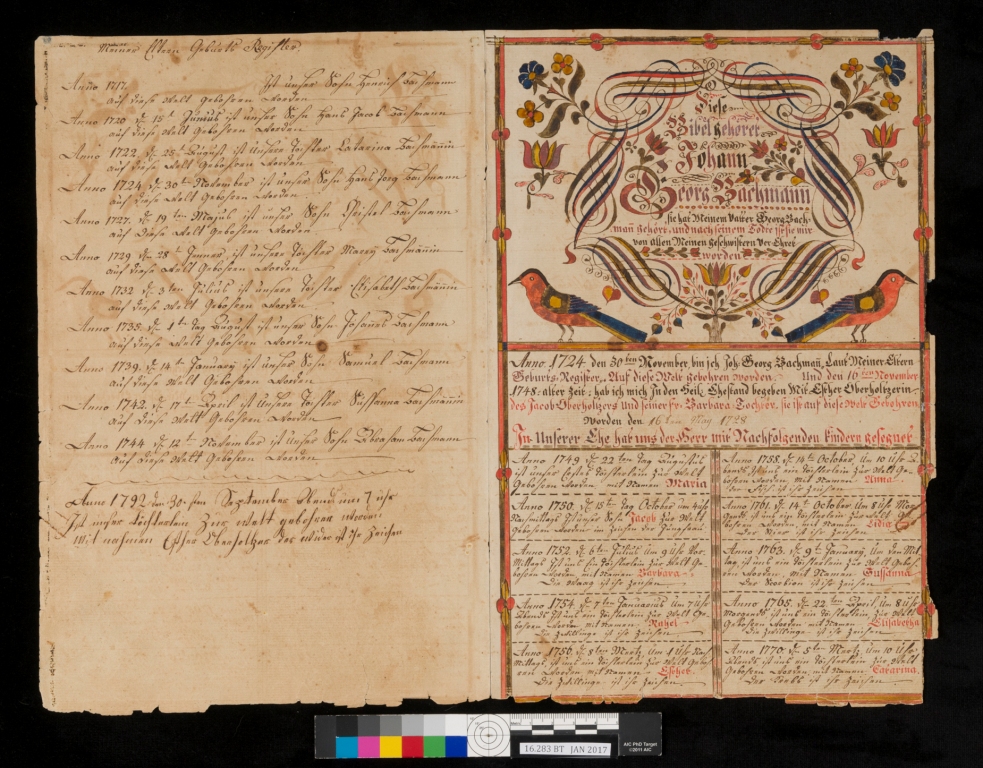 Meiner Eltern Geburts Register.
Anno 1717. Ist unser Sohn Henrich Bachmann
auf diese Welt Gebohren Worden
Anno 1720 d. 15t Junius ist unser Sohn Hans Jacob Bachmann
auf diese Welt Gebohren Worden
Anno 1722 d. 25t August ist unsere Tochter Catarina Bachmänin
auf diese Welt Gebohren Worden
Anno 1724 d. 30ten November ist unser Sohn Hans Jeorg Bachmann
auf diese Welt Gebohren Worden
Anno 1727. d. 19ten Majus ist unser Sohn Christel Bachmann
auf diese Welt Gebohren Worden
Anno 1729 d. 28 Jenner, ist unsere Tochter Marey Bachmänin
auf diese Welt Gebohren Worden
Anno 1732 d. 3ten Julius ist unsere Tochter Elisabeth Bachmänin
auf diese Welt Gebohren Worden
Anno 1735. d. 4t tag August ist unser Sohn Johannes Bachmann
auf diese Welt Gebohren Worden
Anno 1739. d. 14t Januarÿ ist unser Sohn Samuel Bachmann
auf diese Welt Gebohren Worden
Anno 1742. d. 17t April ist unsere Tochter Sussanna Bachmänin
auf diese Welt Gebohren Worden
Anno 1744 d. 12t November ist unser Sohn Abraham Bachmann
auf diese Welt Gebohren Worden
Anno 1792 den 30-sten September Abend um 7 uhr
Ist unser töchterlein Zur Welt gebohren worden
Mit nahmen Esther Oberholtzer der wider ist ihr Zeichen
Diese
Bibel gehöret
Johann
Georg Bachmann
sie hat Meinem Vatter Georg Bach-
man gehört, und nach seinem Todte ist sie mir
von allen Meinen geschwistern Ver Ehret
worden
Anno. 1724 den 30ten November, bin ich Joh: Georg Bachmañ, Laut Meiner Eltern
Geburts-Register,, Auf diese Welt gebohren worden. Und den 10ten November
1748: alter Zeit: hab ich mich In den Heil: Ehestand begeben Mit Esther Oberholtzerin
des Jacob Oberholtzers Und seiner fr: Barbara Tochter, sie ist auf diese Welt Gebohren
Worden den 16ten May 1728
In Unserer Ehe hat uns der Herr mit Nachfolgenden kindern gesegnet
Anno 1749 d. 22ten tag Augustus
ist unser Erstes Töchterlein zur Welt
Gebohren Worden mit Namen Maria
Anno 1750. d. 15t tag October um 4 Uhr
Nachmittags Ist unser Sohn Jacob Zur Welt
Gebohren Worden im Zeichen der Jungfrau
Anno 1752. d. 6ten Julius Um 9 Uhr Vor
Mittags Ist uns ein Töchterlein Zur Welt Ge-
bohren Worden mit Namen Barbara
Die Waag ist ihr Zeichen
Anno 1754. d. 7ten Januarius Um 7 Uhr
Abends ist uns ein Töchterlein Zur Welt Ge-
bohren Worden mit Namen: Rahel
Die Zwillinge ist ihr Zeichen
Anno 1756. d. 8ten Mertz Um 1 Uhr Nach
Mittags, ist uns ein Töchterlein Zur Welt Geboh-
ren Worden mit Namen Esther.
Die Zwillinge ist ihr Zeichen
Anno 1755. d. 14ten October, Um 10 Uhr
Abends Ist uns ein Töchterlein Zur Welt Ge-
bohren Worden, mit Namen Anna.
Anno 1761. d. 14t October. Um 8 Uhr
ist uns ein Töchterlein Zur Welt Ge-
bohren Worden, mit Namen Lidia
ist ihr Zeichen
Anno 1763. d. 9t January, Um den Mit-
tag, ist uns ein Töchterlein Zur Welt Ge-
bohren Worden, mit Namen Sussanna
Der Scorbion ist ihr Zeichen
Anno 1765. d. 22ten April, Um 8 Uhr
Morgends ist uns ein Töchterlein Zur Welt
Gebohren Worden mit Namen Elisabetha
Die Zwillinge ist ihr Zeichen
Anno 1770. d. 5ten Mertz Um 10 Uhr
Abends ist uns ein Töchterlein Zur Welt
Gebohren Worden mit Namen Catarina
Der Krebs ist ihr Zeichen
16.283 BT JAN 2017
AIC PhD Target
©2011 AIC